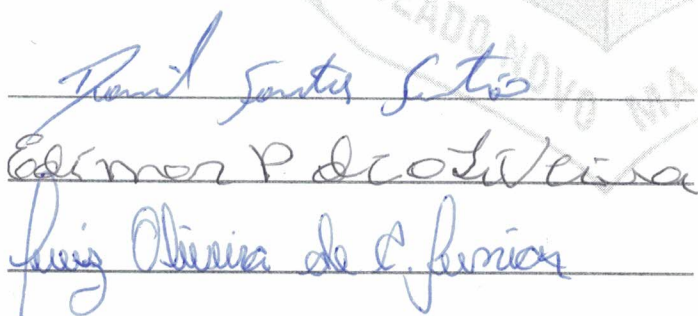 CADO NOVO MA
Santos
Edimar P de Oliveira
Luiz Oliveira de C. Junior